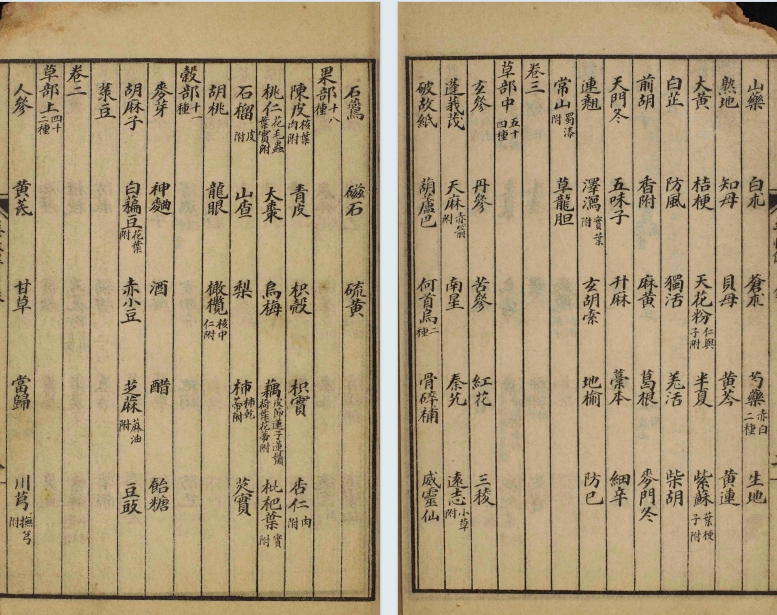 石鷰 磁石 硫黄
果部十八種
陳皮核葉肉附 青皮 枳殻 枳實 杏仁肉附
桃仁花毛蟲葉實附 大棗 烏梅 藕皮節蓮子蓮鬚荷葉花蒂附 枇杷葉實附
石榴皮附 山查 梨 柿柿乾蒂附 芡實
胡桃 龍眼 橄欖核中仁附
穀部十一種
麥芽 神麯 酒 醋 飴糖
胡麻子 白藊豆花葉附 赤小豆 芝麻麻油附 豆豉
菉豆
卷二
草部上四十二種
人參 黄芪 甘草 當歸 川芎撫芎附
山藥 白朮 蒼朮 芍藥赤白二種 生地
熟地 知母 貝母 黄芩 黄連
大黄 桔梗 天花粉仁與子附 半夏 紫蘇葉梗子附
白芷 防風 獨活 羌活 柴胡
前胡 香附 麻黄 葛根 麥門冬
天門冬 五味子 升麻 藁本 細辛
連翹 澤瀉實葉附 玄胡索 地榆 防已
常山蜀漆附 草龍胆
卷三
草部中五十四種
玄參 丹參 苦參 紅花 三稜
蓬莪茂 天麻赤箭附 南星 秦艽 遠志小草附
破故紙 葫蘆巴 何首烏二種 骨碎補 威靈仙